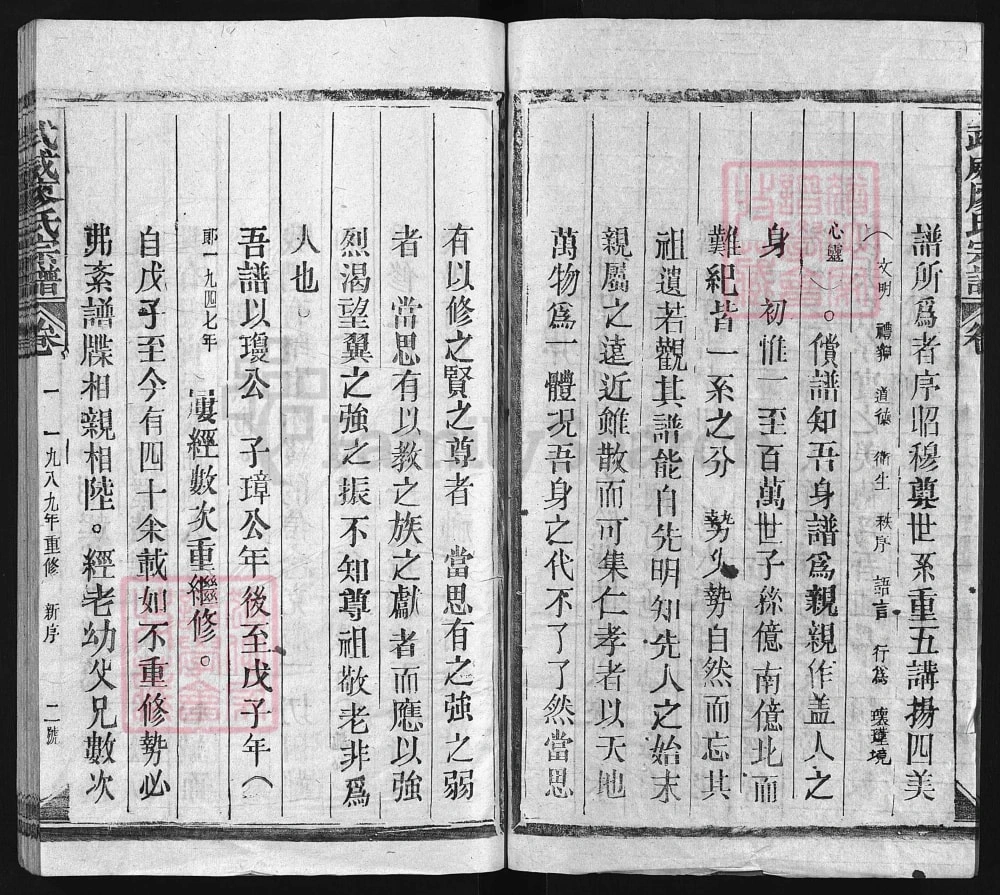 譜所爲者序昭穆奠世系重五講揚四美
(文明 禮貌 道德 衛生 秩序 語言 行爲 環境
心靈)。償譜知吾身譜爲親親作盖人之
身 初惟一至百萬世子孫億南億北而
難紀皆一系之分 勢久勢自然而忘其
祖遺若觀其譜能自先明知先人之始末
親屬之遠近雖散而可集仁孝者以天地
萬物爲一體況吾身之代不了了然當思
有以修之賢之尊者 當思有之強之弱
者 當思有以教之族之獻者而應以強
烈渴望翼之強之振不知尊祖敬老非爲
人也。
吾譜以瓊公 子璋公年後至戊子年(
即一九四七年 屢經數次重繼修。
自戊子至今有四十余載如不重修勢必
弗紊譜牒相親相陸。經老幼父兄數次
武威廖氏宗譜 卷 一 一九八九年重修 新序 二號